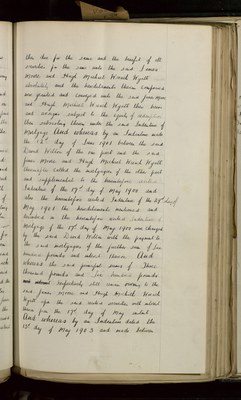 then due for the same and the benefit of all
securities for the same unto the said James
Moore and Hugh Michael Waach Wyatt
absolutely and the hereditaments therein comprised
were granted and conveyed unto the said James Moore
and Hugh Michael Waach Wyatt their heirs
and assigns subject to the equity of redemption
then subsisting therein under the said Indenture of
Mortgage And whereas by an Indenture made
the 12th day of June 1901 between the said
David Welden of the one part and the said
James Moore and Hugh Michael Waach Wyatt
thereinafter called the mortgagees of the other part
and supplemental to the hereinbefore recited
Indenture of the 17th day of May 1900 and
also the hereinbefore recited Indenture of the 23rd day of
May 1901 the hereditaments mentioned and
included in the hereinbefore recited Indenture of
Mortgage of the 17th day of May 1900 were charged
by the said David Welden with the payment to
the said mortgagees of the further sum of five
hundred pounds and interest thereon And
whereas the said principal sums of Three
thousand pounds and five hundred pounds
respectively still remain owing to the
said James Moore and Hugh Michael Waach
Wyatt upon the said recited securities with interest
thereon from the 17th day of May instant
And whereas by an Indenture dated the
23rd day of May 1903 and made between